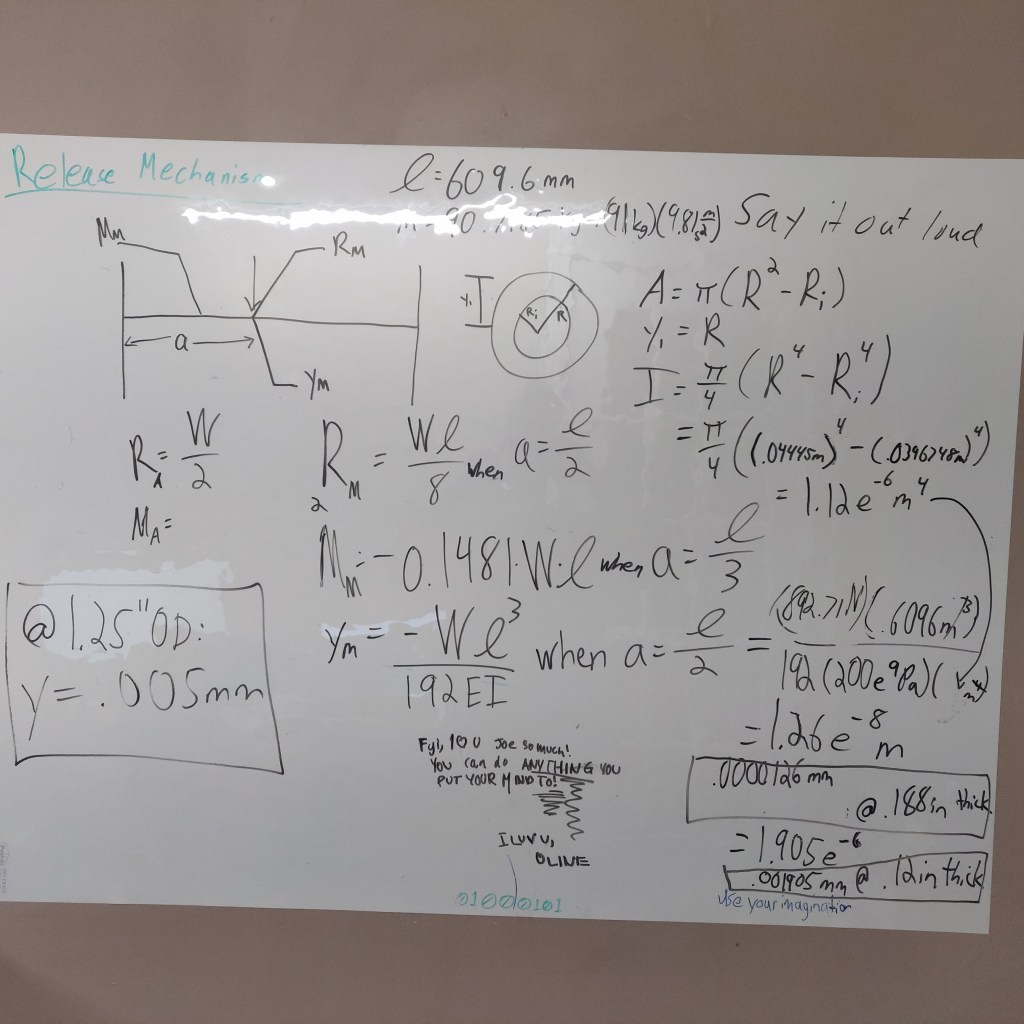 Release Mechanism
l = 609.6 mm
(91 kg)(9.81 m/s²) Say it out loud
Mm
RM
a
YM
y₁
Ri R
A = π(R² - Ri)
y₁ = R
I = π/4 (R⁴ - Ri⁴)
= π/4 ((.04445m)⁴ - (.0396748m)⁴)
= 1.12e⁻⁶ m⁴
RA = W/2
RM = Wl/8 when a = l/2
2
MA =
Mm = -0.1481·W·l when a = l/3
@ 1.25" OD:
y = .005mm
ym = -Wl³/192EI when a = l/2 = (892.71N)(.6096m)³/192(200e⁹Pa)( m⁴)
= 1.26e⁻⁸ m
.0000126 mm
: @ .188in thick
= 1.905e⁻⁶
.001905 mm @ .12in thick
use your imagination
FyI, I O U Joe so much!
You can do ANYTHING YOU
PUT YOUR MIND TO!
I LUV U,
OLIVE
01000101